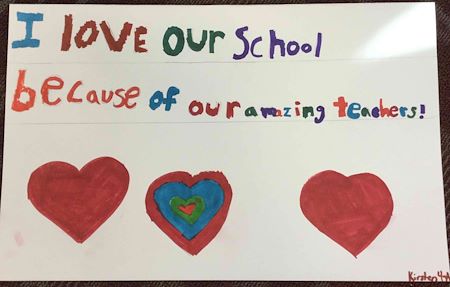 I love our School
because of our amazing teachers!